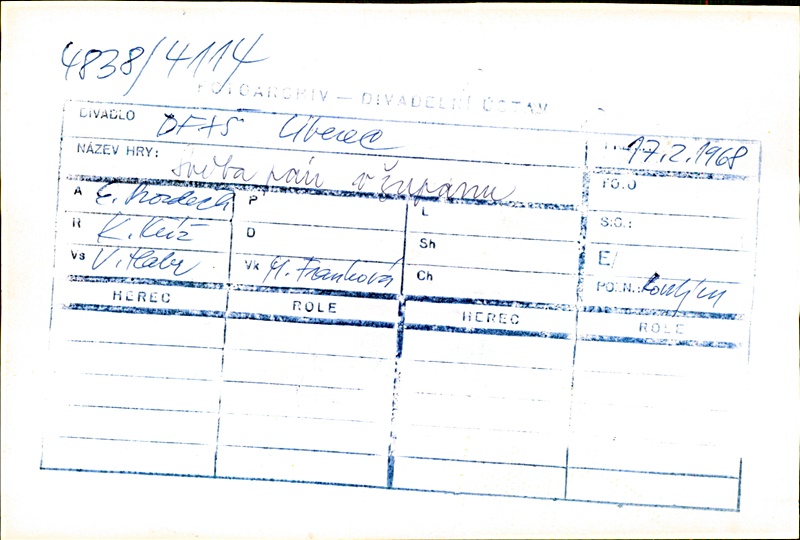 4838/4114
FOTOARCHIV — DIVADELNÍ ÚSTAV
DIVADLO DFXŠ Liberec
17.2.1968
NÁZEV HRY: Světa pán v županu
FO:
A E. Bozdech P L
S.G.:
R K. Kříž D Sh
E/
Vs V. Habr Vk M. Franková Ch
POZN.:
HEREC ROLE HEREC ROLE